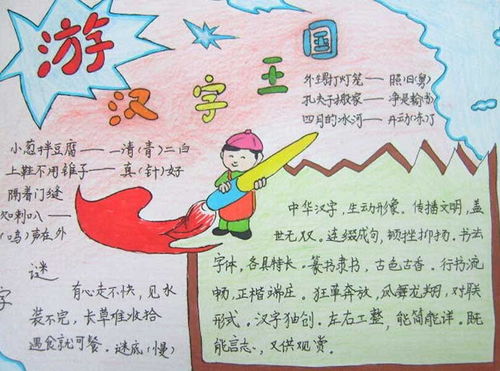 游
汉字王国
外甥打灯笼——照旧(舅)
孔夫子搬家——净是输(书)
四月的冰河——开动(冻)了
小葱拌豆腐——一清(青)二白
上鞋不用锥子——真(针)好
隔着门缝
吹喇叭——
(鸣)声在外
谜
字
有心走不快，见水
装不完，长草难收拾
遇食就可餐。谜底(慢)
中华汉字，生动形象。传播文明，盖
世无双。连缀成句，顿挫抑扬。书法
字体，各具特长。篆书隶书，古色古香。行书流
畅，正楷端庄。狂草奔放，凤舞龙翔，对联
形式。汉字独创。左右工整，能简能详。既
能言志，又供观赏。